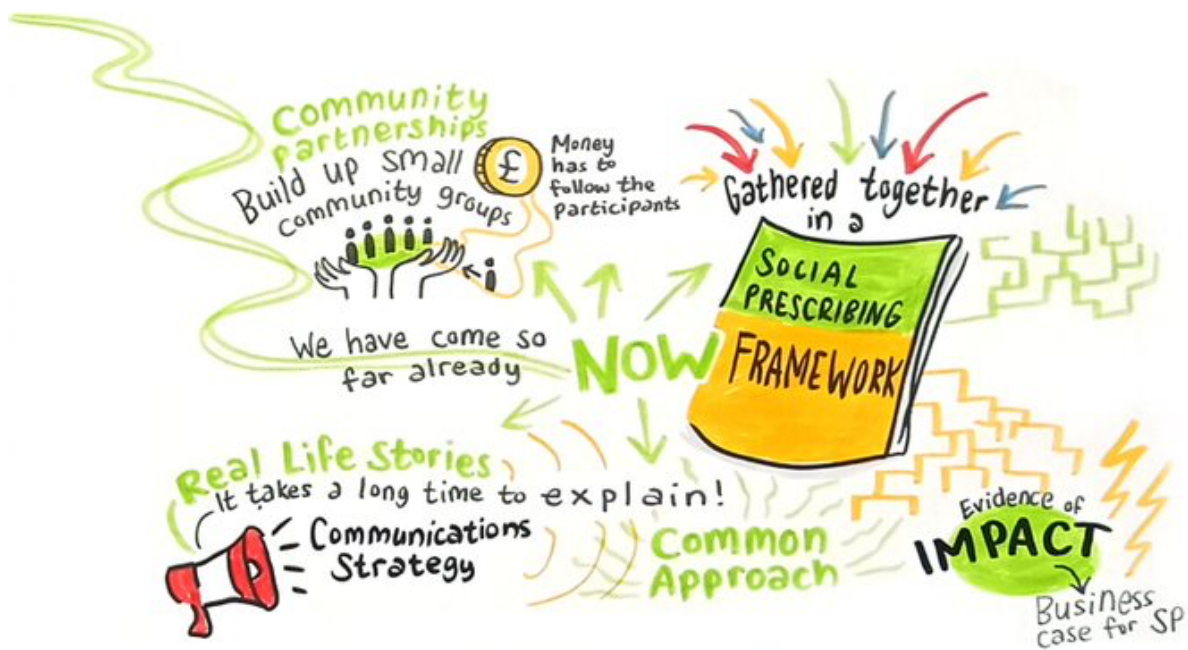 Community
partnerships
Build up small
community groups
£
Money
has to
follow the
participants
Gathered together
in a
SOCIAL
PRESCRIBING
FRAMEWORK
We have come so
far already
NOW
Real Life Stories
It takes a long time to explain!
Communications
Strategy
Common
Approach
Evidence of
IMPACT
Business
case for SP